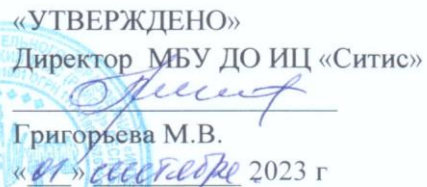 «УТВЕРЖДЕНО»
Директор МБУ ДО ИЦ «Ситис»
Григорьева М.В.
«01» сентября 2023 г